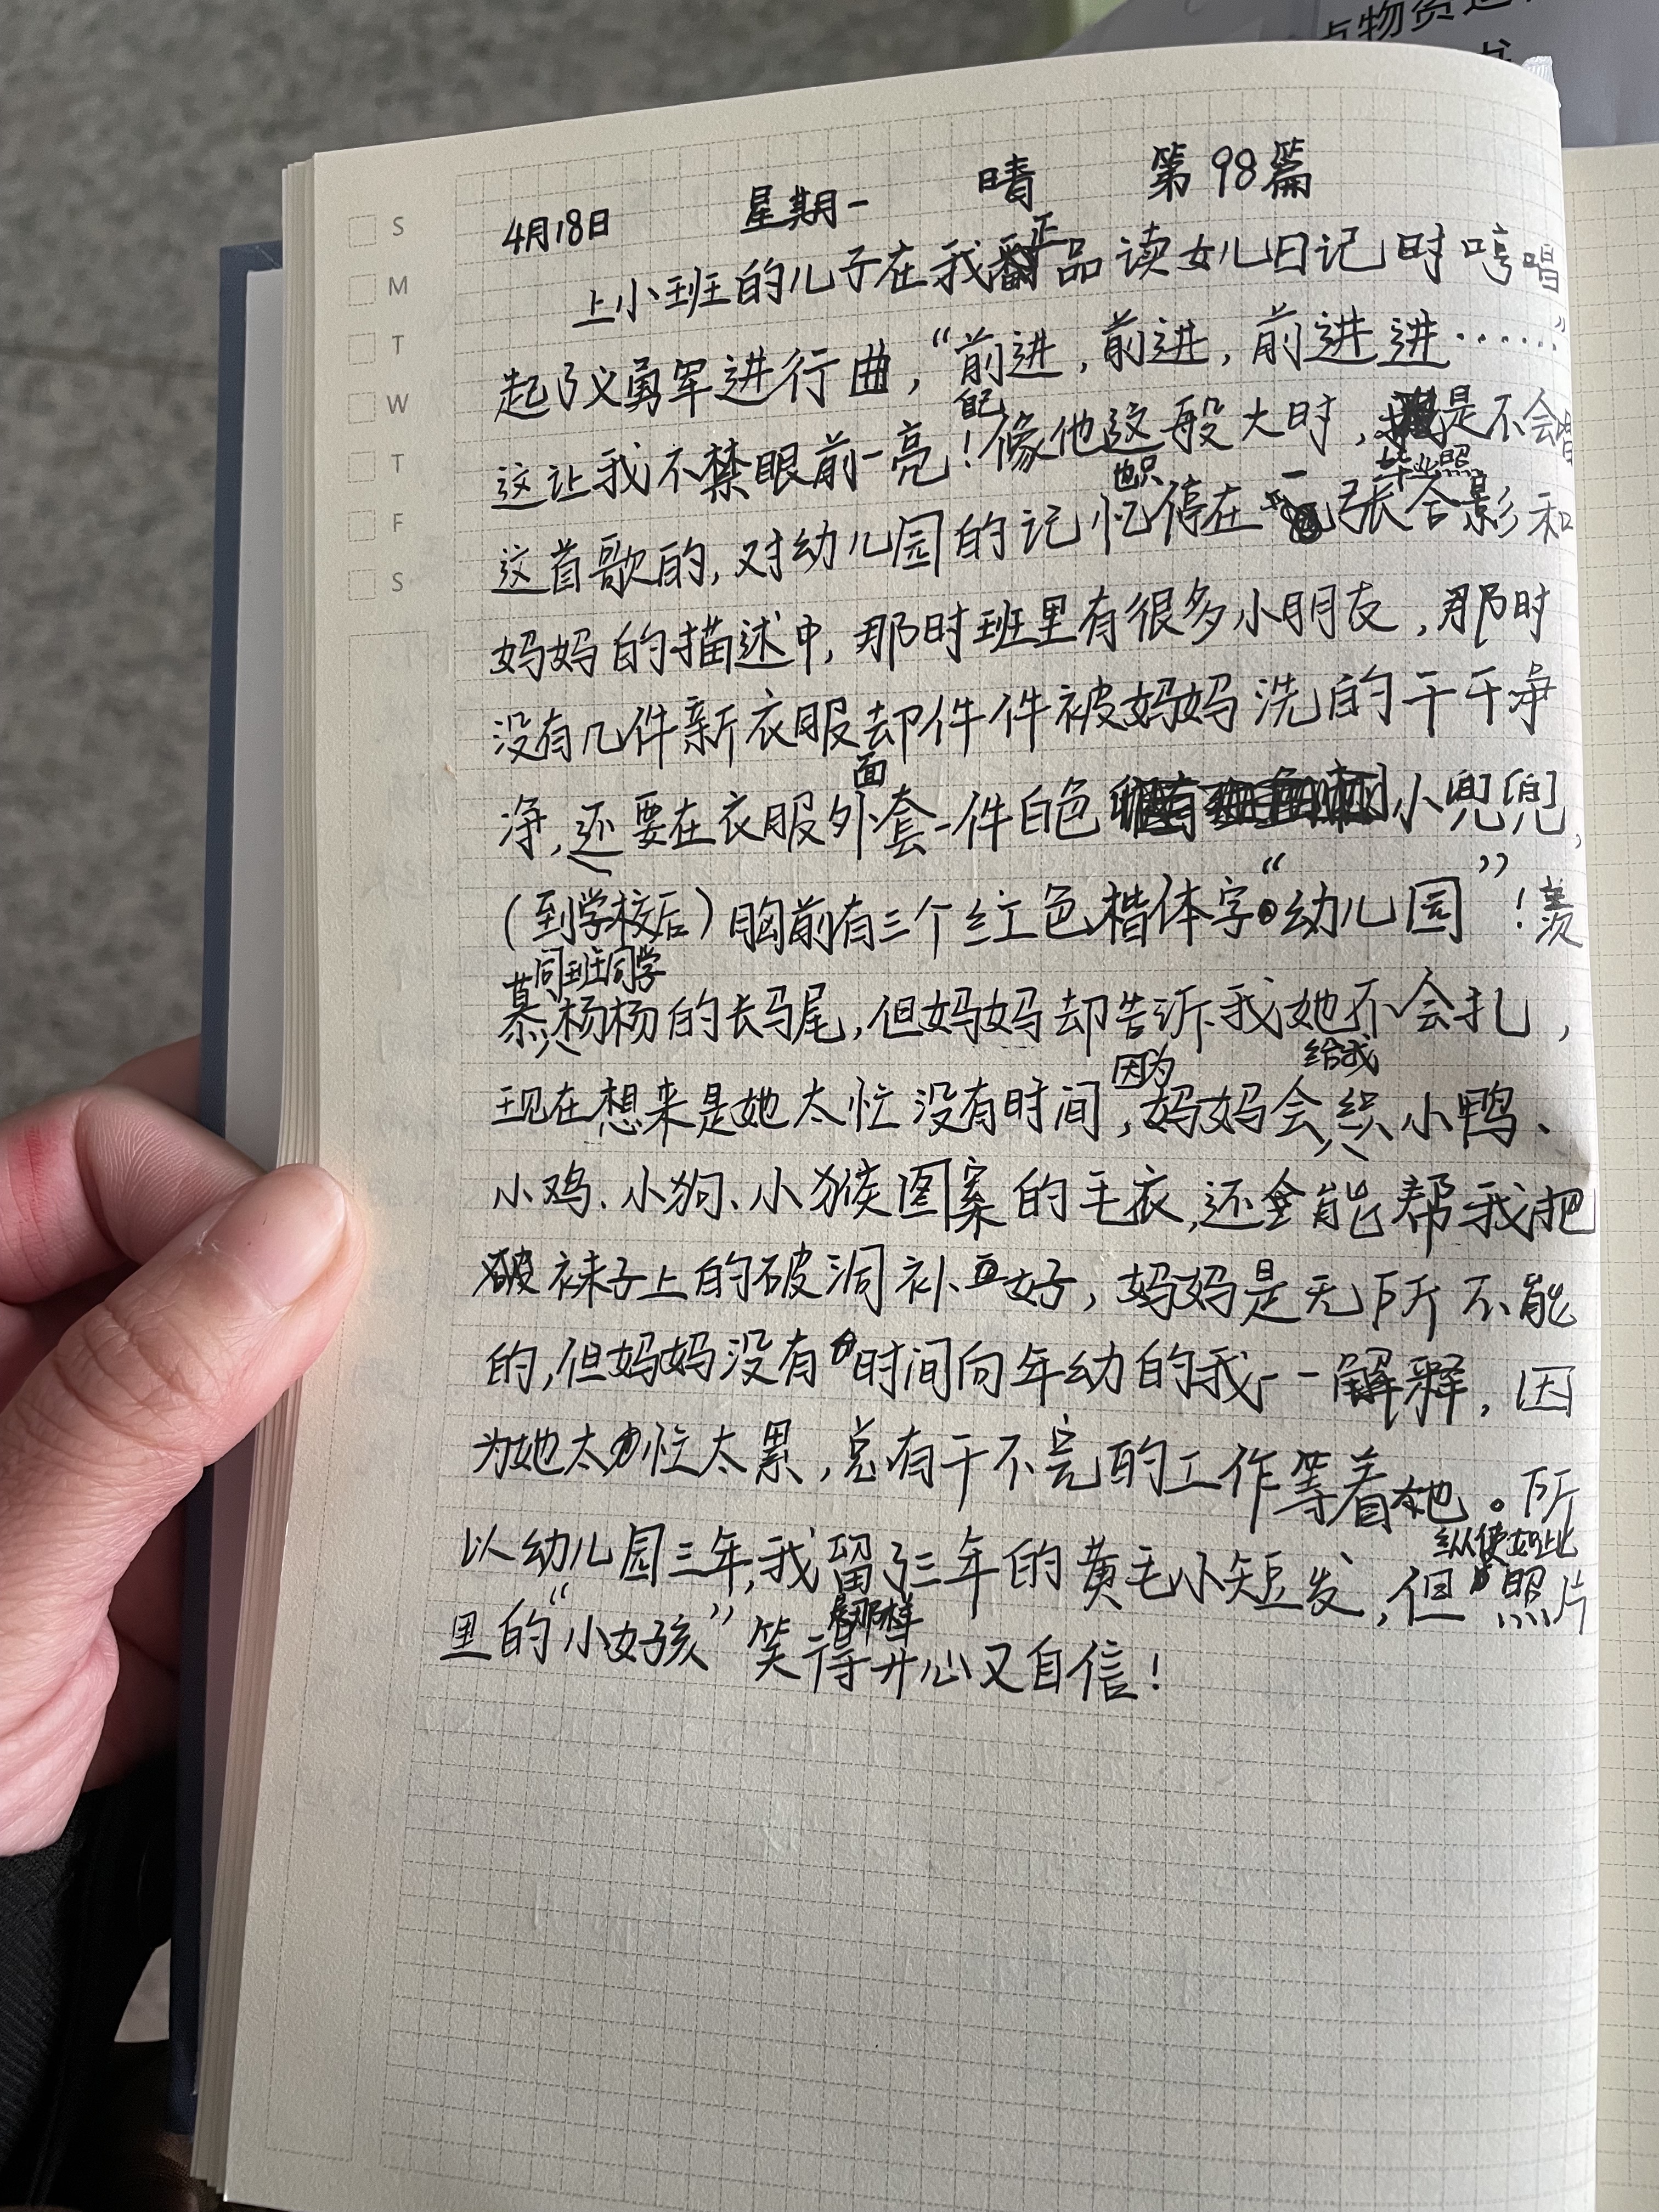 点物资
S
M
T
W
T
F
S
4月18日 星期一 晴 第98篇
上小班的儿子在我正品读女儿日记时哼唱
起了义勇军进行曲，“前进，前进，前进进……”
这让我不禁眼前一亮！自己像他这般大时，是不会唱
这首歌的，对幼儿园的记忆也只停在一张毕业照合影和
妈妈的描述中，那时班里有很多小朋友，那时
没有几件新衣服却件件被妈妈洗的干干净
净，还要在衣服外面套一件白色小兜兜，
（到学校后）胸前有三个红色楷体字“幼儿园”！羡
慕同班同学杨杨的长马尾，但妈妈却告诉我她不会扎，
现在想来是她太忙没有时间，因为妈妈会给我织小鸭、
小鸡、小狗、小猴图案的毛衣，还能帮我把
破袜子上的破洞补好，妈妈是无所不能
的，但妈妈没有时间向年幼的我一一解释，因
为她太忙太累，总有干不完的工作等着她。所
以幼儿园三年，我留了三年的黄毛小短发，但纵使如此照片
里的“小女孩”笑得那样开心又自信！